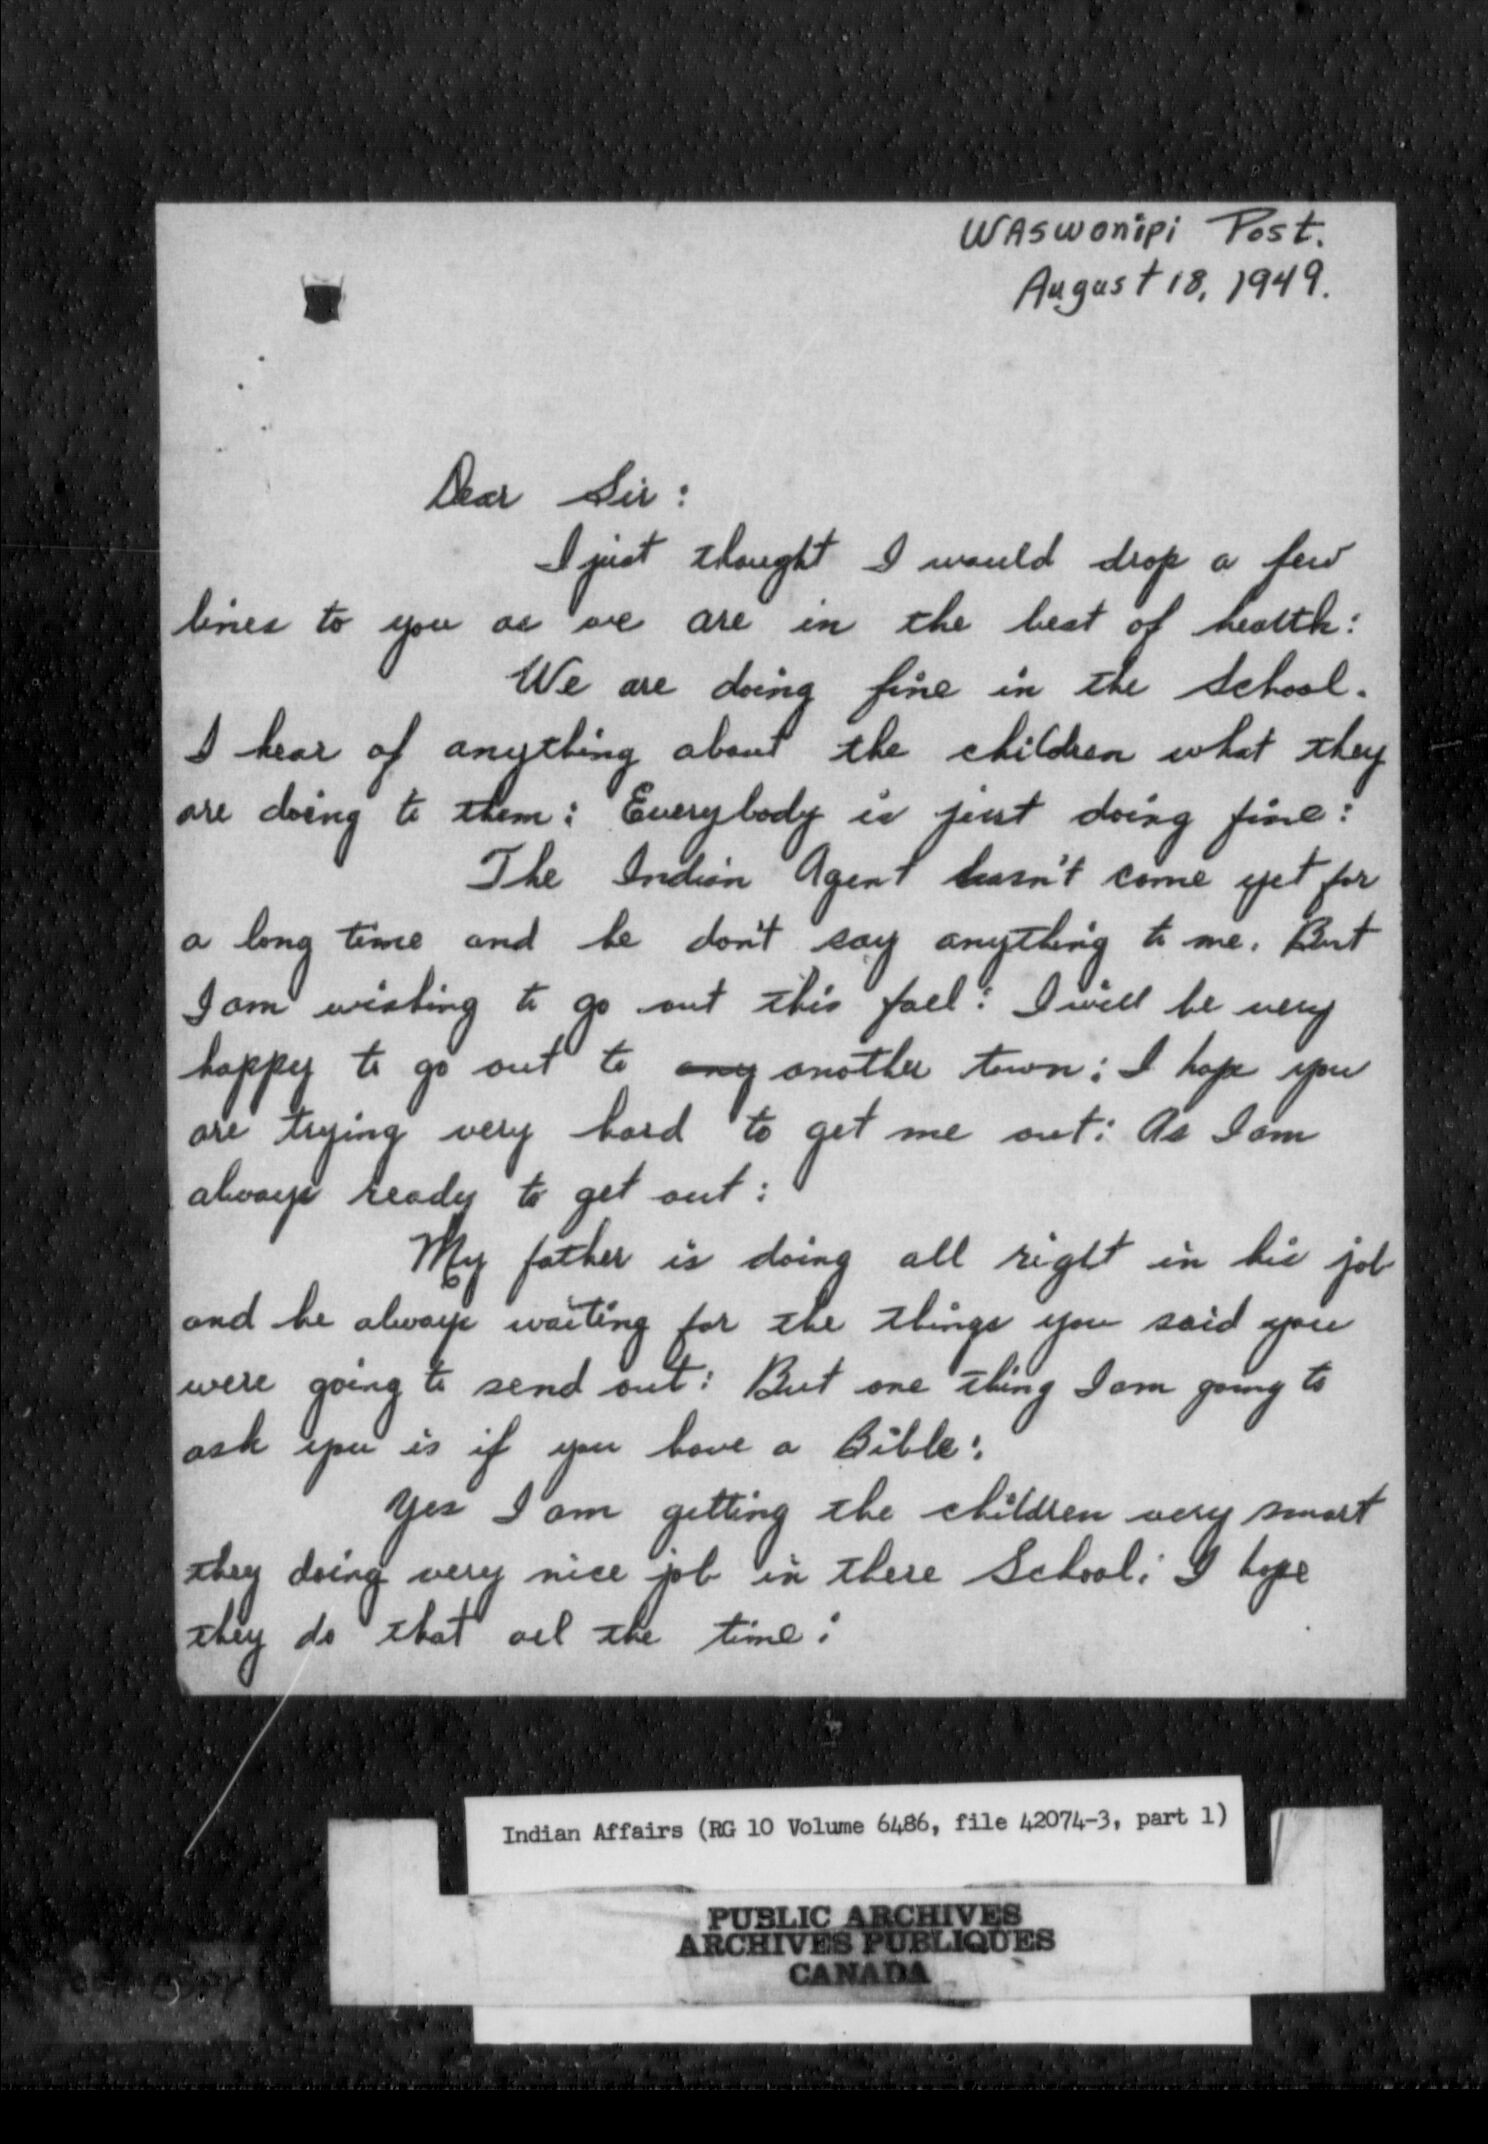 WASwonipi Post.
August 18, 1949.
Dear Sir:
I just thought I would drop a few
lines to you as we are in the best of health:
We are doing fine in the School.
I hear of anything about the children what they
are doing to them: Everybody is just doing fine:
The Indian Agent hasn't come yet for
a long time and he don't say anything to me. But
I am wishing to go out this fall: I will be very
happy to go out to any another town: I hope you
are trying very hard to get me out: As I am
always ready to get out:
My father is doing all right in his job
and he always waiting for the things you said you
were going to send out: But one thing I am going to
ask you is if you have a Bible:
Yes I am getting the children very smart
they doing very nice job in there School: I hope
they do that all the time:
Indian Affairs (RG 10 Volume 6486, file 42074-3, part 1)
PUBLIC ARCHIVES
ARCHIVES PUBLIQUES
CANADA